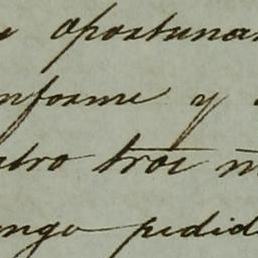 oportuna
nforme y
tro troi
ngo pedid